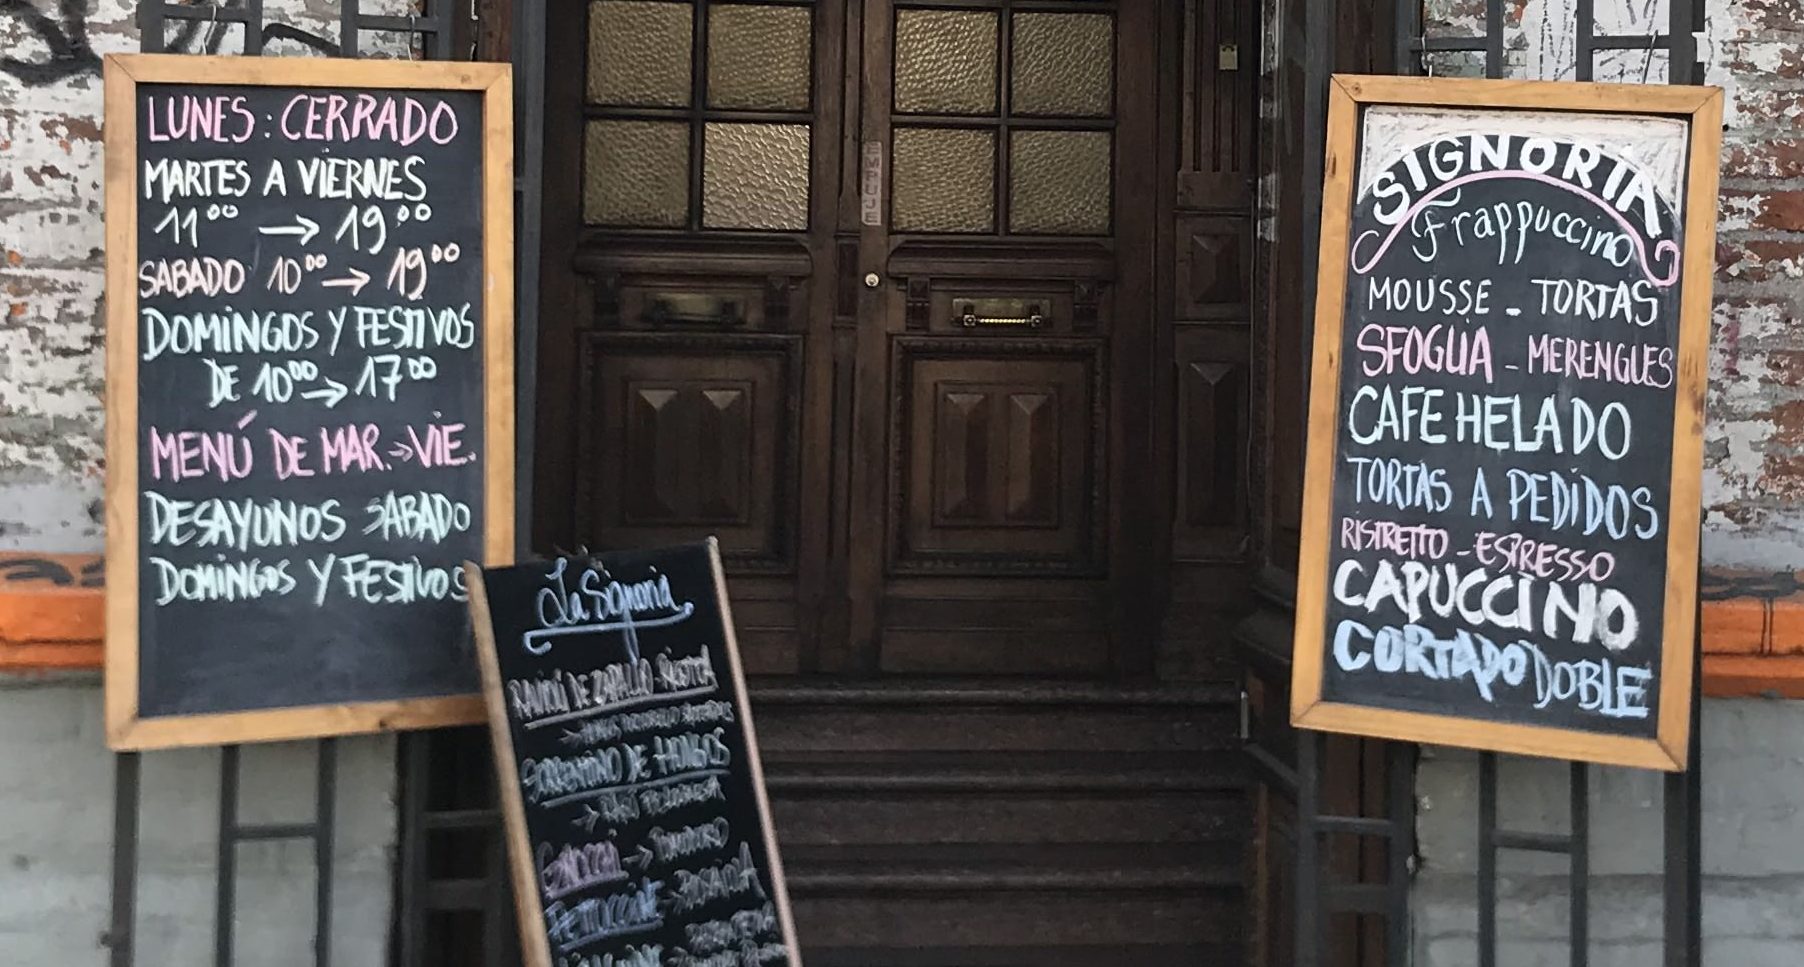 LUNES : CERRADO
MARTES A VIERNES
11⁰⁰ → 19⁰⁰
SABADO 10⁰⁰ → 19⁰⁰
DOMINGOS Y FESTIVOS
DE 10⁰⁰ → 17⁰⁰
MENÚ DE MAR. → VIE.
DESAYUNOS SABADO
DOMINGOS Y FESTIVOS
La Signoria
DE ZAPALLO - RICOTTA
SORRENTINO DE HONGOS
→
→ POMODORO
FETTUCCINE →
EMPUJE
SIGNORIA
Frappuccino
MOUSSE - TORTAS
SFOGLIA - MERENGUES
CAFE HELADO
TORTAS A PEDIDOS
RISTRETTO - ESPRESSO
CAPUCCINO
CORTADO DOBLE